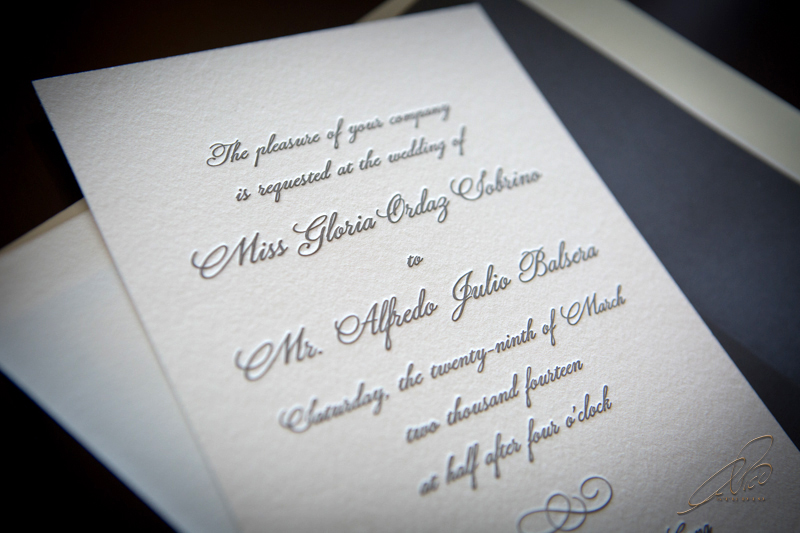 The pleasure of your company
is requested at the wedding of
Miss Gloria Ordaz Sobrino
to
Mr. Alfredo Julio Balsera
Saturday, the twenty-ninth of March
two thousand fourteen
at half after four o'clock